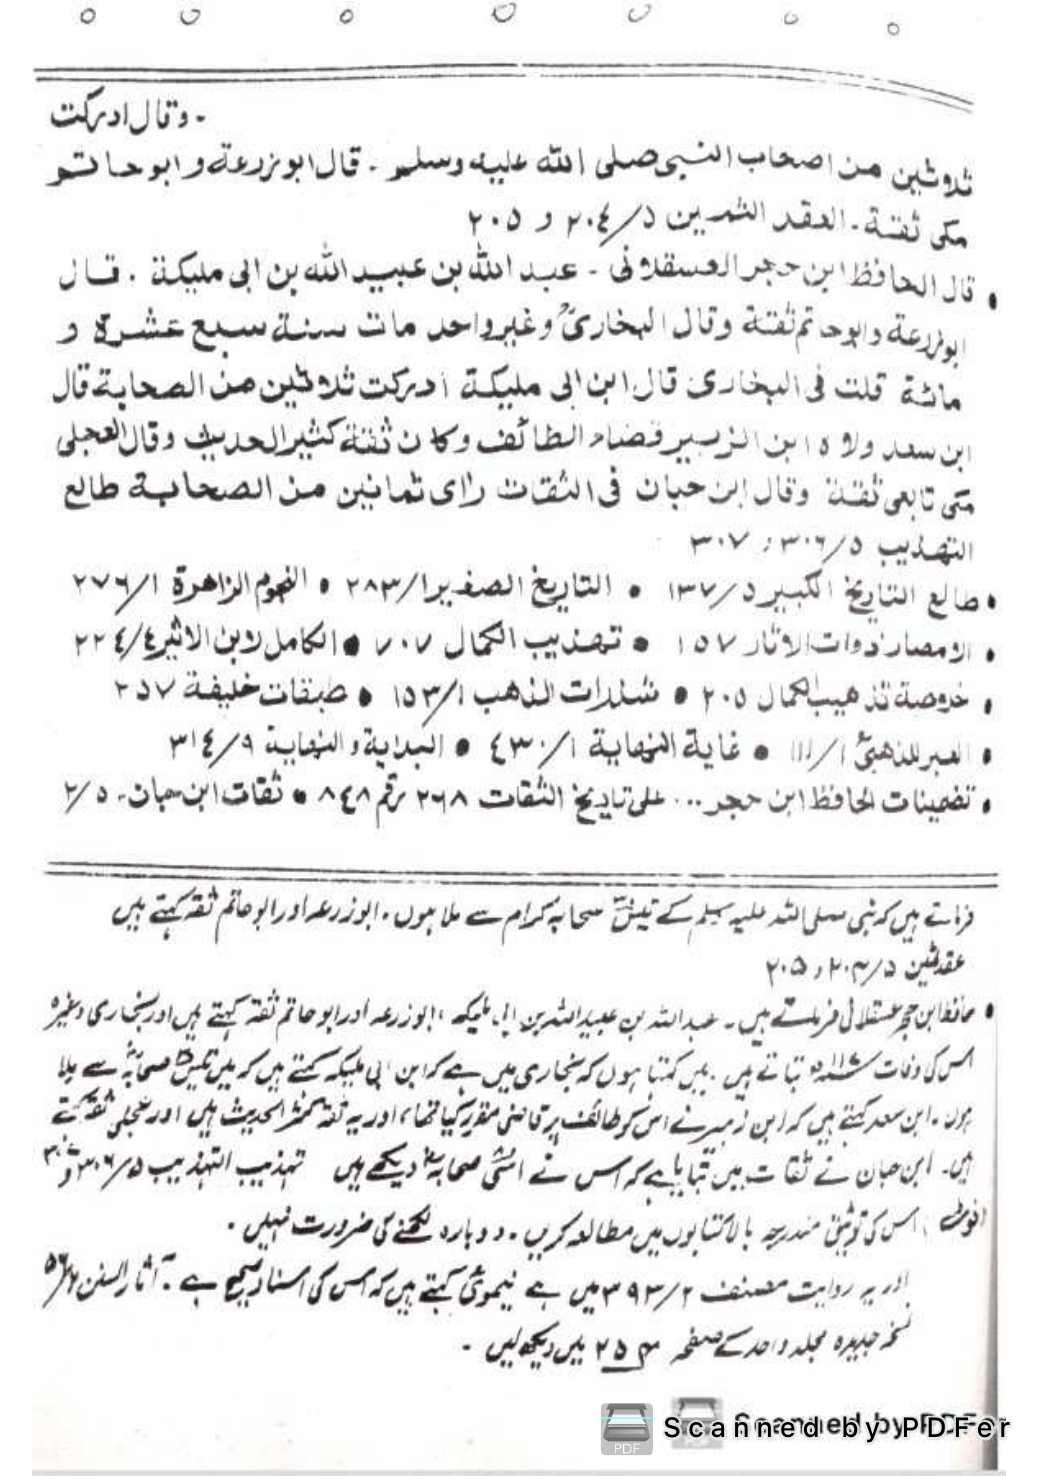 ۔ وقال ادركت
ثلاثين من اصحاب النبی صلی الله عليه وسلم ۔ قال ابو زرعة و ابو حاتم
مكی ثقة ۔ العقد الثمين ٥/٢٠٤ و ٢٠٥
• قال الحافظ ابن حجر العسقلانی ۔ عبد الله بن عبيد الله بن ابی مليكة ۔ قال
ابو زرعة و ابو حاتم ثقة وقال البخاریؒ وغير واحد مات سنة سبع عشرة و
مائة قلت فی البخاری قال ابن ابی مليكة ادركت ثلاثين من الصحابة قال
ابن سعد ولاه ابن الزبير قضاء الطائف وكان ثقة كثير الحديث وقال العجلی
مكی تابعی ثقة وقال ابن حبان فی الثقات رای ثمانين من الصحابة طالع
التهذيب ٥/٣٠٦ و ٣٠٧
• طالع التاريخ الكبير ٥/١٣٧ • التاريخ الصغير ١/٢٨٣ • النجوم الزاهرة ١/٢٧٦
• الامصار ذوات الاثار ١٥٧ • تهذيب الكمال ٧٠٧ • الكامل لابن الاثير ٤/٢٢٤
• خلاصة تذهيب الكمال ٢٠٥ • شذرات الذهب ١/١٥٣ • طبقات خليفة ٢٥٧
• العبر للذهبیؒ ١/١١١ • غاية النهاية ١/٤٣٠ • البداية و النهاية ٩/٣١٤
• تضمينات الحافظ ابن حجر... على تاريخ الثقات ٢٦٨ رقم ٨٤٨ • ثقات ابن حبان ۔ ٥/٢
فرماتے ہیں کہ نبی صلی اللہ علیہ وسلم کے تیس صحابہ کرام سے ملا ہوں ۔ ابو زرعہ اور ابو حاتم ثقہ کہتے ہیں
عقد ثمین ۵/۲۰۴ و ۲۰۵
• حافظ ابن حجر عسقلانی فرماتے ہیں ۔ عبد اللہ بن عبید اللہ بن ابی ملیکہ ، ابو زرعہ اور ابو حاتم ثقہ کہتے ہیں اور بخاری وغیرہ
اس کی وفات ۱۱۷ھ بتاتے ہیں ۔ میں کہتا ہوں کہ بخاری میں ہے کہ ابن ابی ملیکہ کہتے ہیں کہ میں تیس صحابہؓ سے ملا
ہوں ۔ ابن سعد کہتے ہیں کہ ابن زبیر نے اس کو طائف پر قاضی مقرر کیا تھا ، اور یہ ثقہ کثیر الحدیث ہیں اور عجلی ثقہ کہتے
ہیں ۔ ابن حبان نے ثقات میں بتایا ہے کہ اس نے اسّی صحابہؓ دیکھے ہیں تہذیب التہذیب ۵/۳۰۶ و ۳۰۷
(نوٹ) اس کی توثیق مندرجہ بالا کتابوں میں مطالعہ کریں ۔ دوبارہ لکھنے کی ضرورت نہیں ۔
اور یہ روایت مصنف ۲/۳۹۳ میں ہے نیمویؒ کہتے ہیں کہ اس کی اسناد صحیح ہے ۔ آثار السنن ۲/۵۶
نسخہ جدیدہ مجلد واحد کے صفحہ ۲۵۴ میں دیکھ لیں ۔
Scanned by PDFer